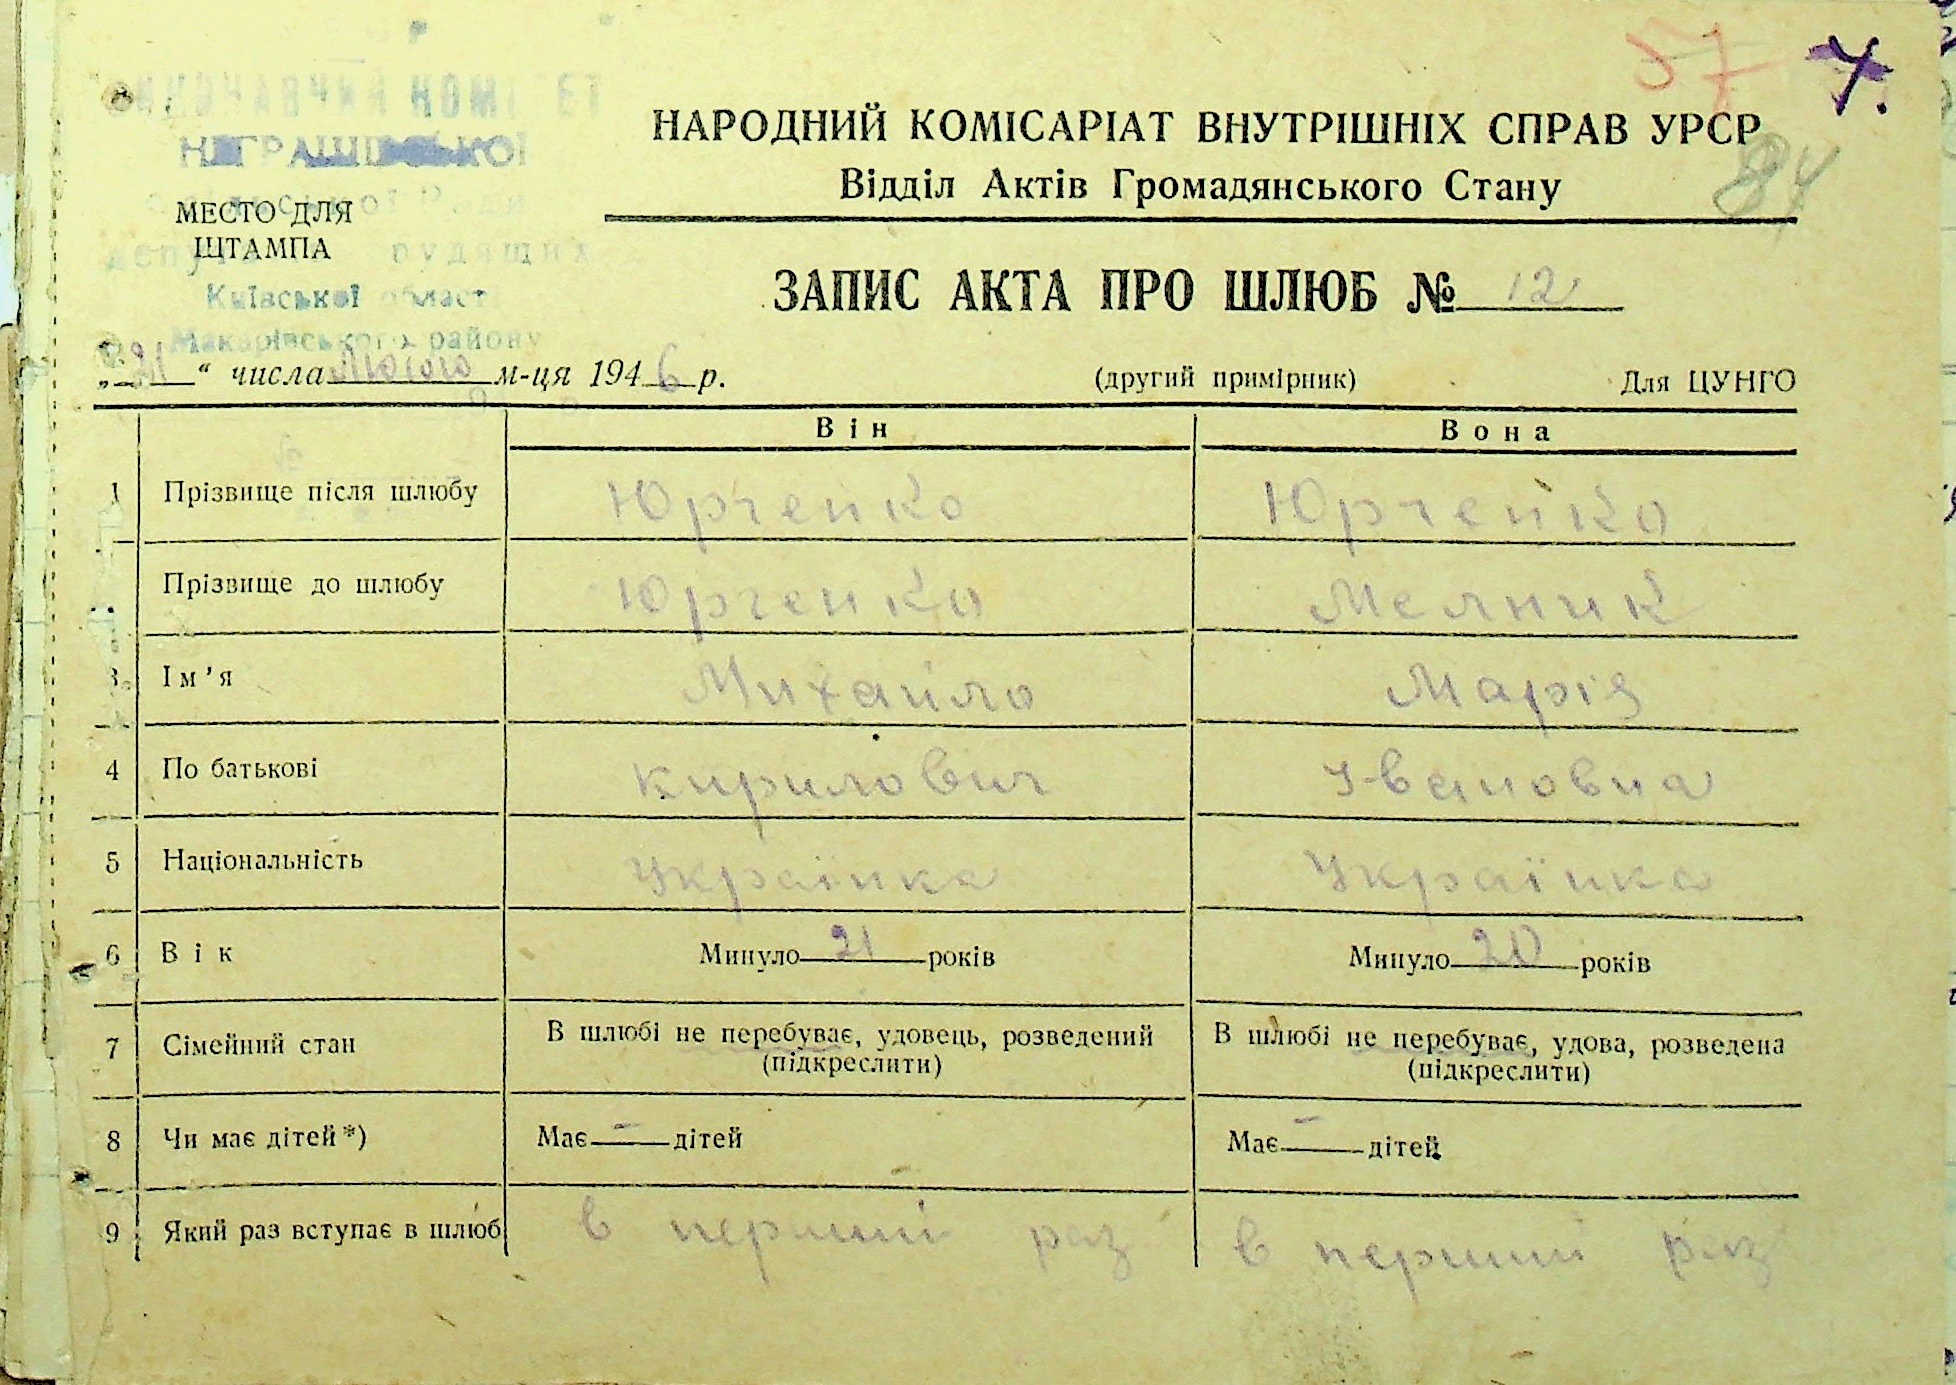 57 7.
ВИКОНАВЧИЙ КОМІТЕТ
84
НАРОДНИЙ КОМІСАРІАТ ВНУТРІШНІХ СПРАВ УРСР
Відділ Актів Громадянського Стану
МЕСТО ДЛЯ
ШТАМПА
Київської області
Макарівського району
ЗАПИС АКТА ПРО ШЛЮБ № 12
„21“ числа Лютого м-ця 1946 р. (другий примірник) Для ЦУНГО
Він Вона
1 Прізвище після шлюбу Юрченко Юрченко
Прізвище до шлюбу Юрченко Мелник
3 Ім'я Михайло Марія
4 По батькові Кирилович Івановна
5 Національність Українка Українка
6 Вік Минуло 21 років Минуло 20 років
7 Сімейний стан В шлюбі не перебуває, удовець, розведений (підкреслити) В шлюбі не перебуває, удова, розведена (підкреслити)
8 Чи має дітей*) Має — дітей Має — дітей
9 Який раз вступає в шлюб в перший раз в перший раз